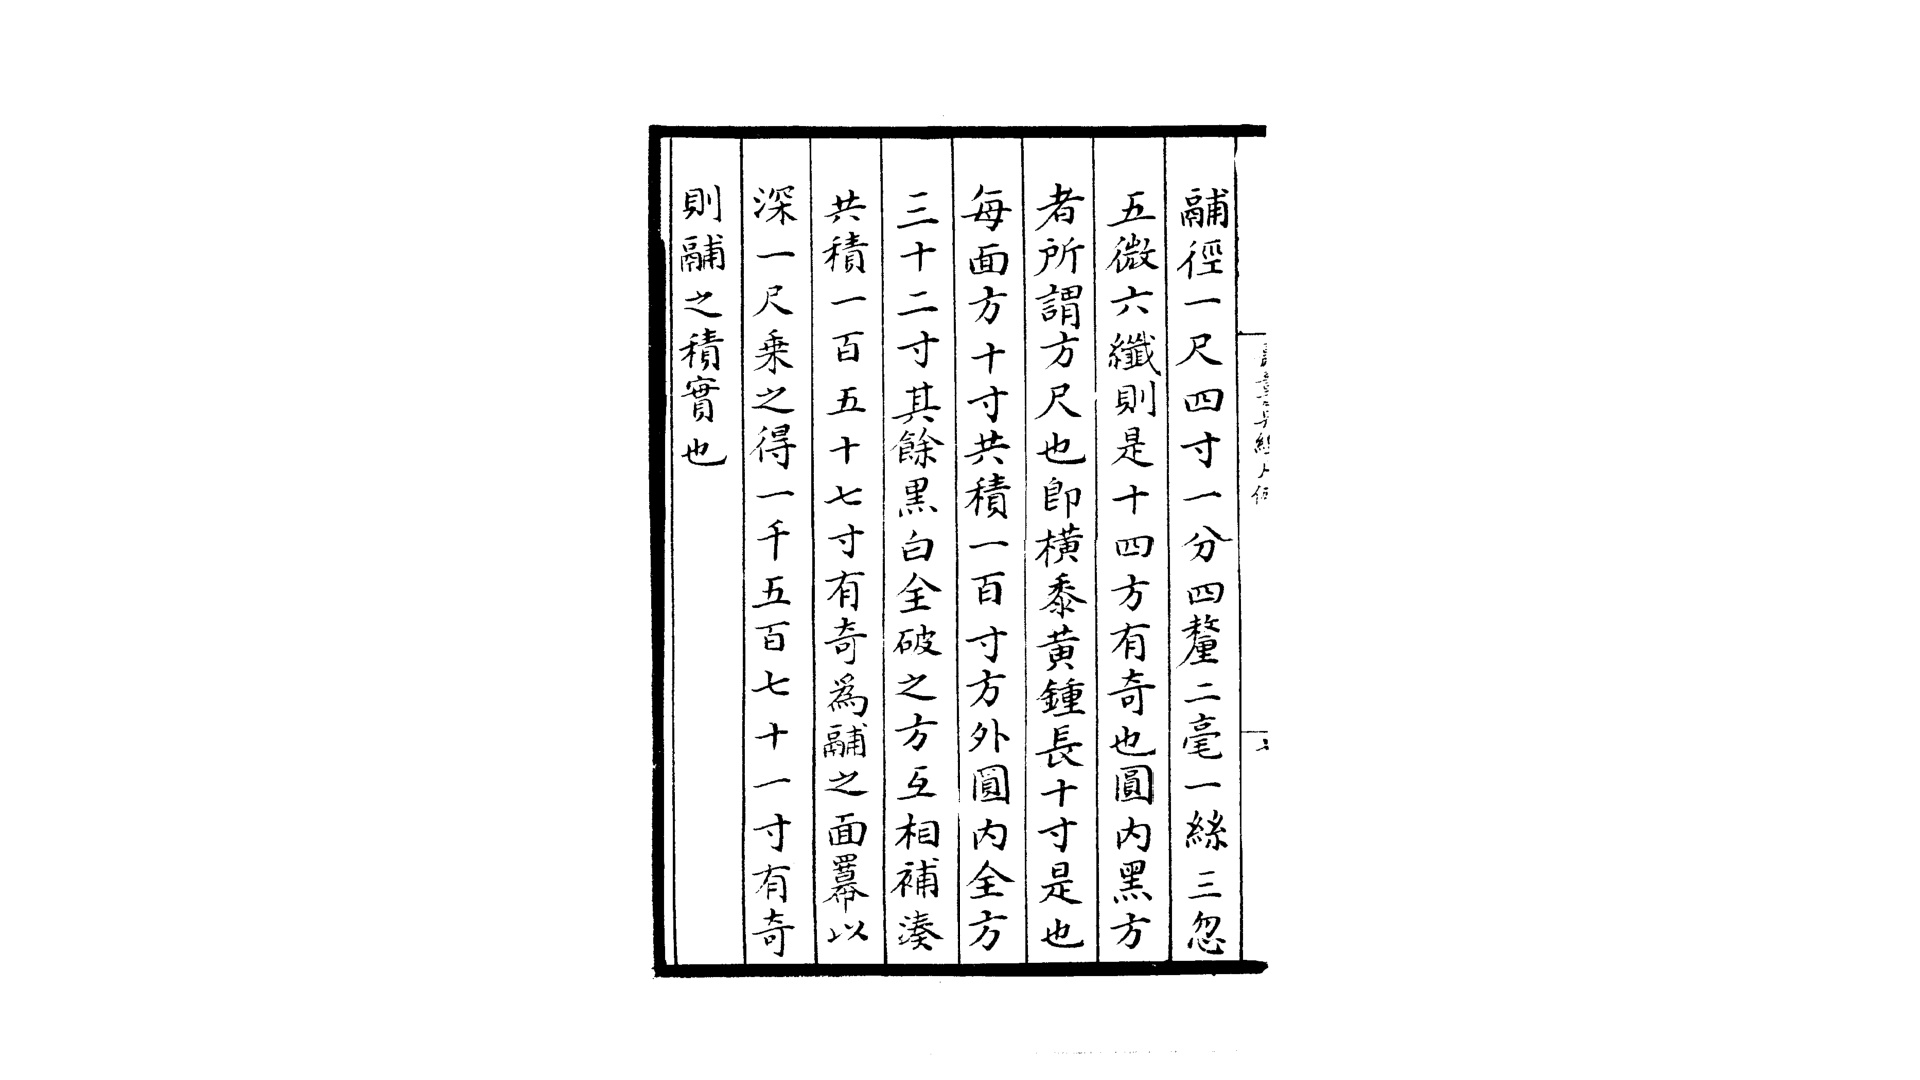 鬴徑一尺四寸一分四釐二毫一絲三忽
五微六纖則是十四方有奇也圓内黑方
者所謂方尺也即横黍黄鍾長十寸是也
每面方十寸共積一百寸方外圓内全方
三十二寸其餘黑白全破之方互相補湊
共積一百五十七寸有奇為鬴之面羃以
深一尺乗之得一千五百七十一寸有奇
則鬴之積實也